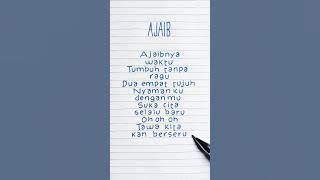 AJAIB
Ajaibnya
waktu
Tumbuh tanpa
ragu
Dua empat tujuh
Nyamanku
denganmu
Suka cita
selalu baru
Oh oh oh
Tawa kita
kan berseru